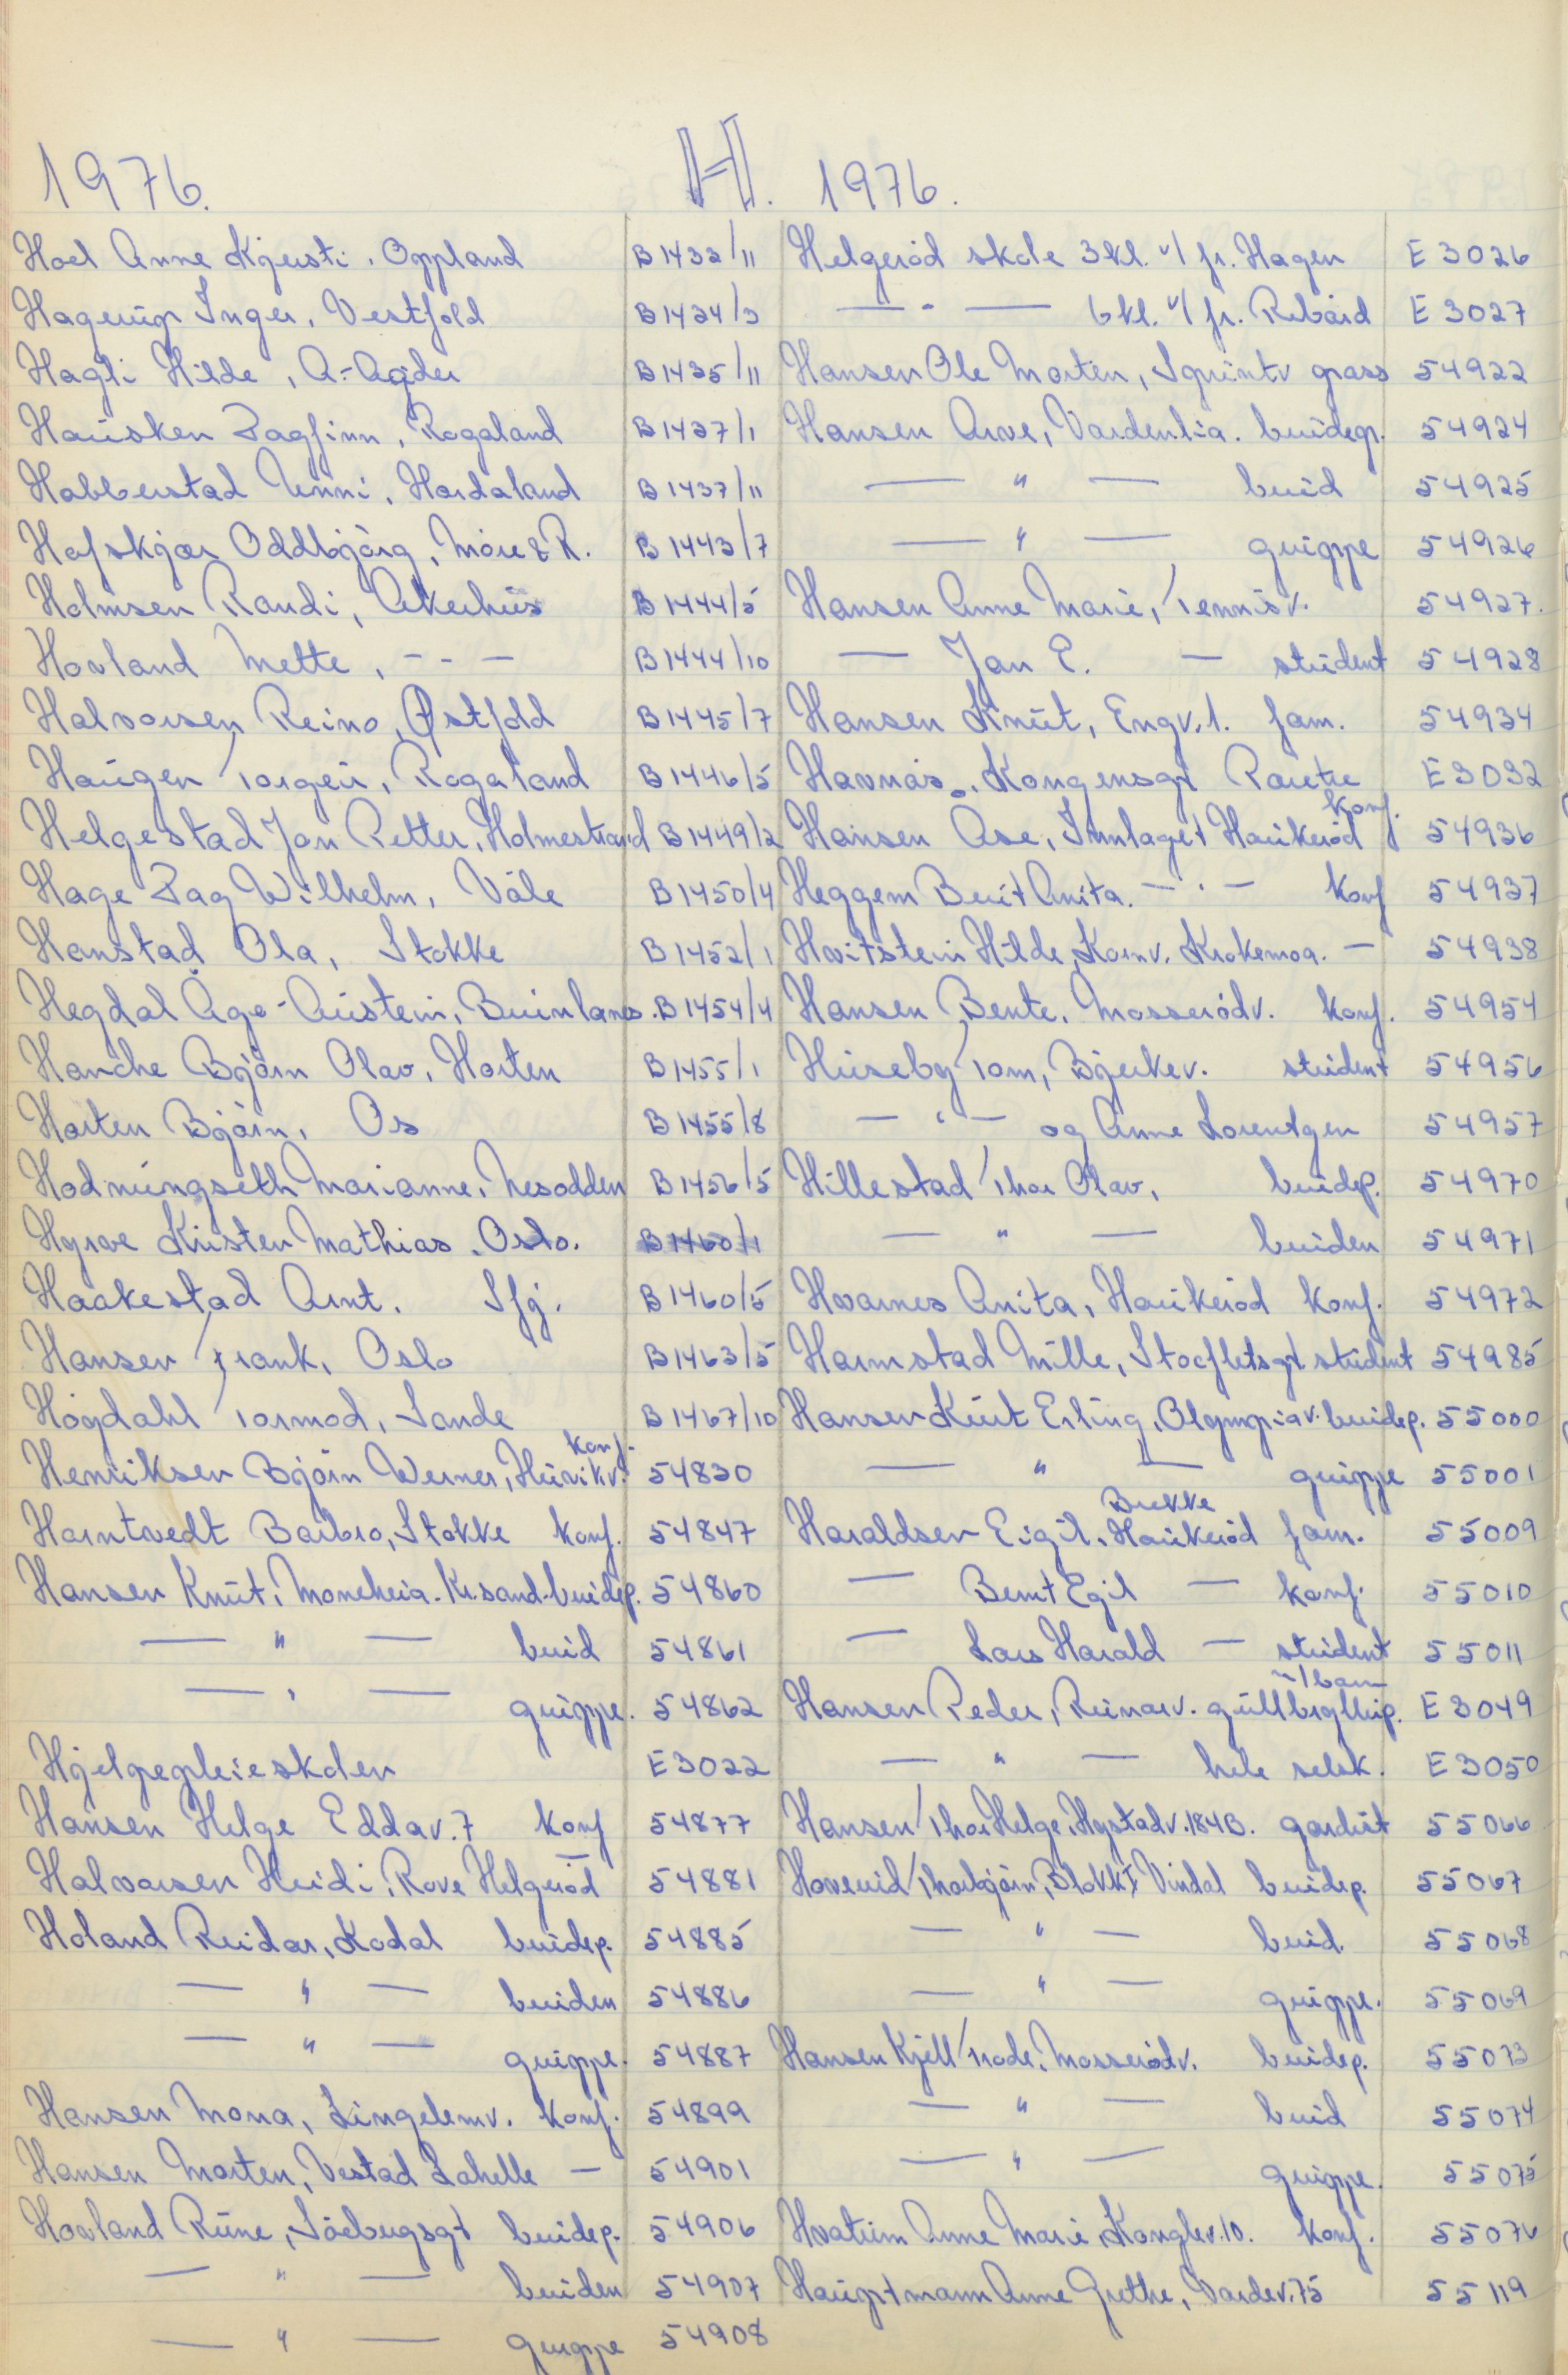 1976. H. 1976.
Hoel Anne Kjersti, Oppland B1432/11
Hagerup Inger, Vestfold B1434/3
Hagli Hilde, A.-Agder B1435/11
Hausken Dagfinn, Rogaland B1437/1
Habberstad Unni, Hordaland B1437/11
Hafskjær Oddbjörg, Möre & R. B1443/7
Holmsen Randi, Akerhus B1444/5
Hovland Mette, - - - B1444/10
Halvorsen Reino, Østfold B1445/7
Haugen Torgeir, Rogaland B1446/5
Helgestad Jan Petter, Holmestrand B1449/2
Hage Dag Wilhelm, Våle B1450/4
Hanstad Ola, Stokke B1452/1
Hegdal Åge-Austein, Buinlanes. B1454/4
Hanche Björn Olav, Horten B1455/1
Horten Björn, Os B1455/8
Hodnungseth Marianne, Nesodden B1456/5
Hyrve Kristen Mathias, Oslo. B1460/1
Haakestad Arnt. Sfj. B1460/5
Hansen Frank, Oslo B1463/5
Högdahl Tormod, Sande B1467/10
Henriksen Björn Werner, konf. 54830
Harntvedt Barbro, Stokke konf. 54847
Hansen Knut, Moneheia. Kr.sand. brudep. 54860
— " — brud 54861
— " — gruppe. 54862
Hjelpepleieskolen E3022
Hansen Helge Eddav. 7 konf 54877
Halvorsen Heidi, Rove Helgeröd — 54881
Holand Reidar, Kodal brudep. 54885
— " — bruden 54886
— " — gruppe. 54887
Hansen Mona, Lingelemv. konf. 54899
Hansen Morten, Vestad Lahelle — 54901
Hovland Rune, Söebergsgt brudep. 54906
— " — bruden 54907
— " — gruppe 54908
Helgeröd skole 3kl. v/ fr. Hagen E3026
— " — 6kl. v/ fr. Rebård E3027
Hansen Ole Morten, Sprintv pass 54922
Hansen Arve, Vardenlia. brudep. 54924
— " — brud 54925
— " — gruppe 54926
Hansen Anne Marie, Tennisv. 54927.
— Jan E. — student 54928
Hansen Knut, Engv. 1. fam. 54934
Havnås, Kongensgt E3032
Hansen Åse, Haukeröd konf. 54936
Heggem Berit Anita. — " — konf 54937
Hvitstein Hilde, Kornv. Krokemoa. — 54938
Hansen Bente, Mosserödv. konf. 54954
Huseby Tom, Bjerkev. student 54956
— " — og Anne Lorentzen 54957
Hillestad Thor Olav, brudep. 54970
— " — bruden 54971
Hvarnes Anita, Haukeröd konf. 54972
Harmstad Mille, Stocfletsgt student 54985
Hansen Kurt Erling, Olympiav. brudep. 55000
— " — gruppe 55001
Haraldsen Eigil, Brekke Haukeröd fam. 55009
— Bernt Egil — konf. 55010
— Lars Harald — student 55011
Hansen Peder, Reinarv. gullbryllup. m/barn E3049
— " — hele selsk. E3050
Hansen Thor Helge, Hystadv. 184B. gardist 55066
Hoverud Thorbjörn, Blokk I Vindal brudep. 55067
— " — brud. 55068
— " — gruppe. 55069
Hansen Kjell Frode, Mosserödv. brudep. 55073
— " — brud 55074
— " — gruppe. 55075
Hvatum Anne Marie, Konglev. 10. konf. 55076
Hauptmann Anne Grethe, Vardev. 75 55119